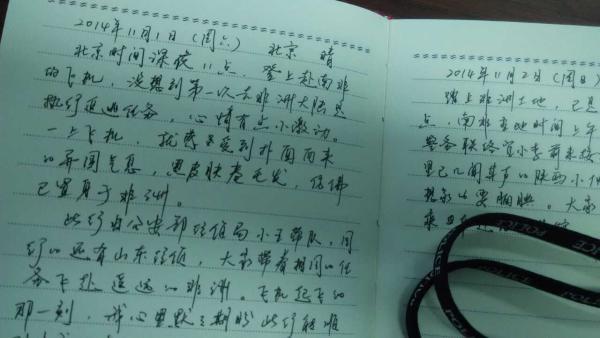 2014年11月1日（周六） 北京 晴
北京时间深夜11点，登上赴南非
的飞机，没想到第一次去非洲大陆是
执行追逃任务，心情有点小激动。
一上飞机，就感受到扑面而来
的异国气息，黑皮肤卷毛发，仿佛
已置身于非洲。
此行由公安部经侦局小王带队，同
行的还有山东经侦，大家带着相同的任
务飞赴遥远的非洲。飞机起飞的
那一刻，我心里默默期盼此行能顺
2014年11月2日（周日）
踏上非洲土地，已是
点，南非当地时间上午
警务联络官小李前来接
POLICE